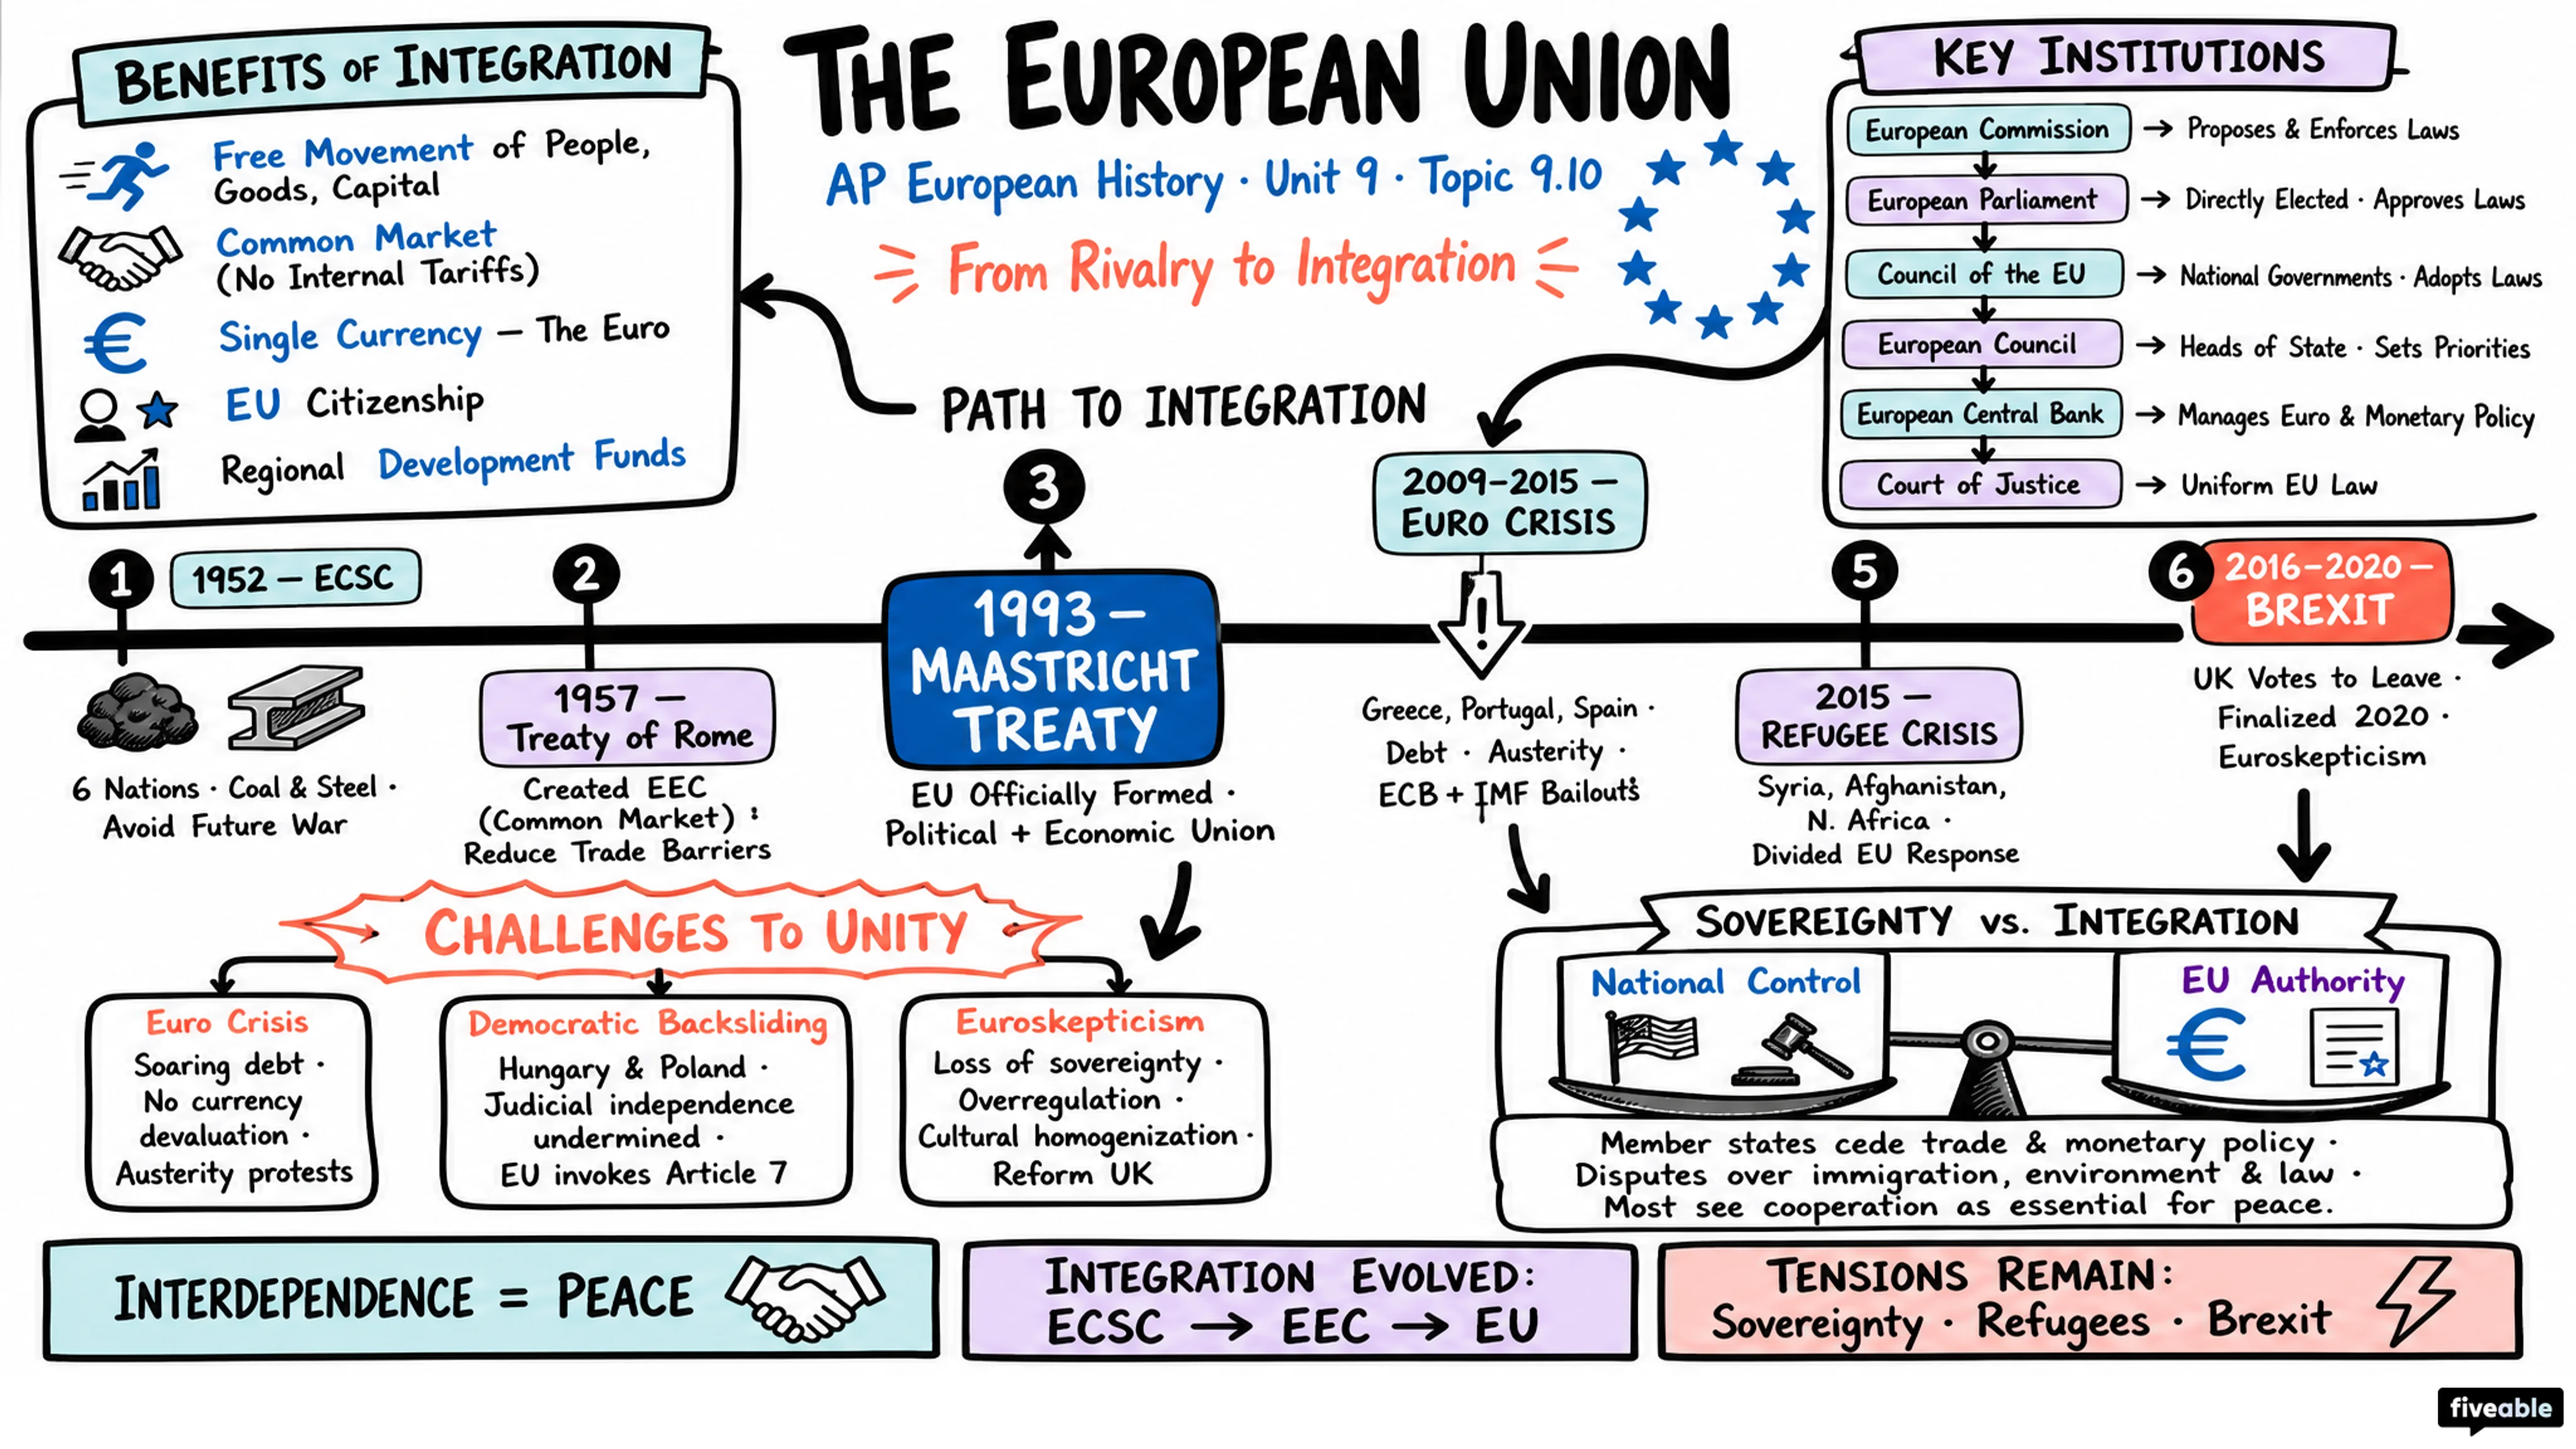 THE EUROPEAN UNION
AP European History · Unit 9 · Topic 9.10
From Rivalry to Integration
BENEFITS OF INTEGRATION
Free Movement of People,
Goods, Capital
Common Market
(No Internal Tariffs)
€
Single Currency — The Euro
EU Citizenship
Regional Development Funds
KEY INSTITUTIONS
European Commission → Proposes & Enforces Laws
European Parliament → Directly Elected · Approves Laws
Council of the EU → National Governments · Adopts Laws
European Council → Heads of State · Sets Priorities
European Central Bank → Manages Euro & Monetary Policy
Court of Justice → Uniform EU Law
PATH TO INTEGRATION
1
1952 — ECSC
6 Nations · Coal & Steel ·
Avoid Future War
2
1957 —
Treaty of Rome
Created EEC
(Common Market) :
Reduce Trade Barriers
3
1993 —
MAASTRICHT
TREATY
EU Officially Formed ·
Political + Economic Union
2009–2015 —
EURO CRISIS
!
Greece, Portugal, Spain ·
Debt · Austerity ·
ECB + IMF Bailouts
5
2015 —
REFUGEE CRISIS
Syria, Afghanistan,
N. Africa ·
Divided EU Response
6
2016–2020 —
BREXIT
UK Votes to Leave ·
Finalized 2020 ·
Euroskepticism
CHALLENGES TO UNITY
Euro Crisis
Soaring debt ·
No currency
devaluation ·
Austerity protests
Democratic Backsliding
Hungary & Poland ·
Judicial independence
undermined ·
EU invokes Article 7
Euroskepticism
Loss of sovereignty ·
Overregulation ·
Cultural homogenization ·
Reform UK
SOVEREIGNTY vs. INTEGRATION
National Control
EU Authority
€
Member states cede trade & monetary policy ·
Disputes over immigration, environment & law ·
Most see cooperation as essential for peace.
INTERDEPENDENCE = PEACE
INTEGRATION EVOLVED:
ECSC → EEC → EU
TENSIONS REMAIN:
Sovereignty · Refugees · Brexit
fiveable